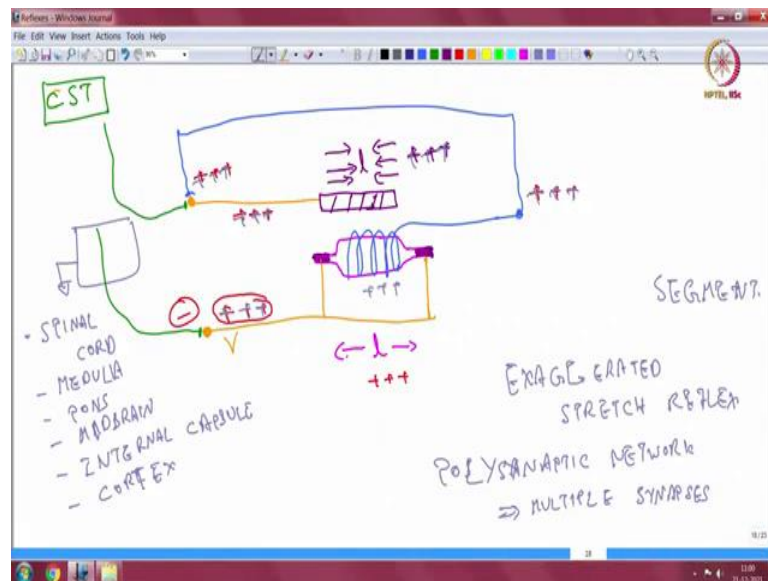 Reflexes - Windows Journal
File Edit View Insert Actions Tools Help
NPTEL, IISc
CST
+++
l
+++
+++
+++
+++
- +++
SEGMENT.
l
+++
• SPINAL
CORD
- MEDULLA
- PONS
- MIDBRAIN
- INTERNAL CAPSULE
- CORTEX
EXAGERATED
STRETCH REFLEX
POLYSANAPTIC NETWORK
⇒ MULTIPLE SYNAPSES
28
11:00